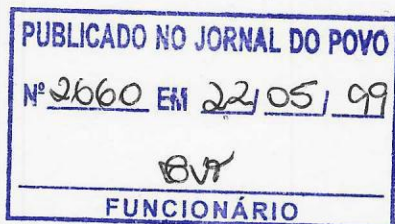 PUBLICADO NO JORNAL DO POVO
Nº 2660 EM 22/05/99
FUNCIONÁRIO